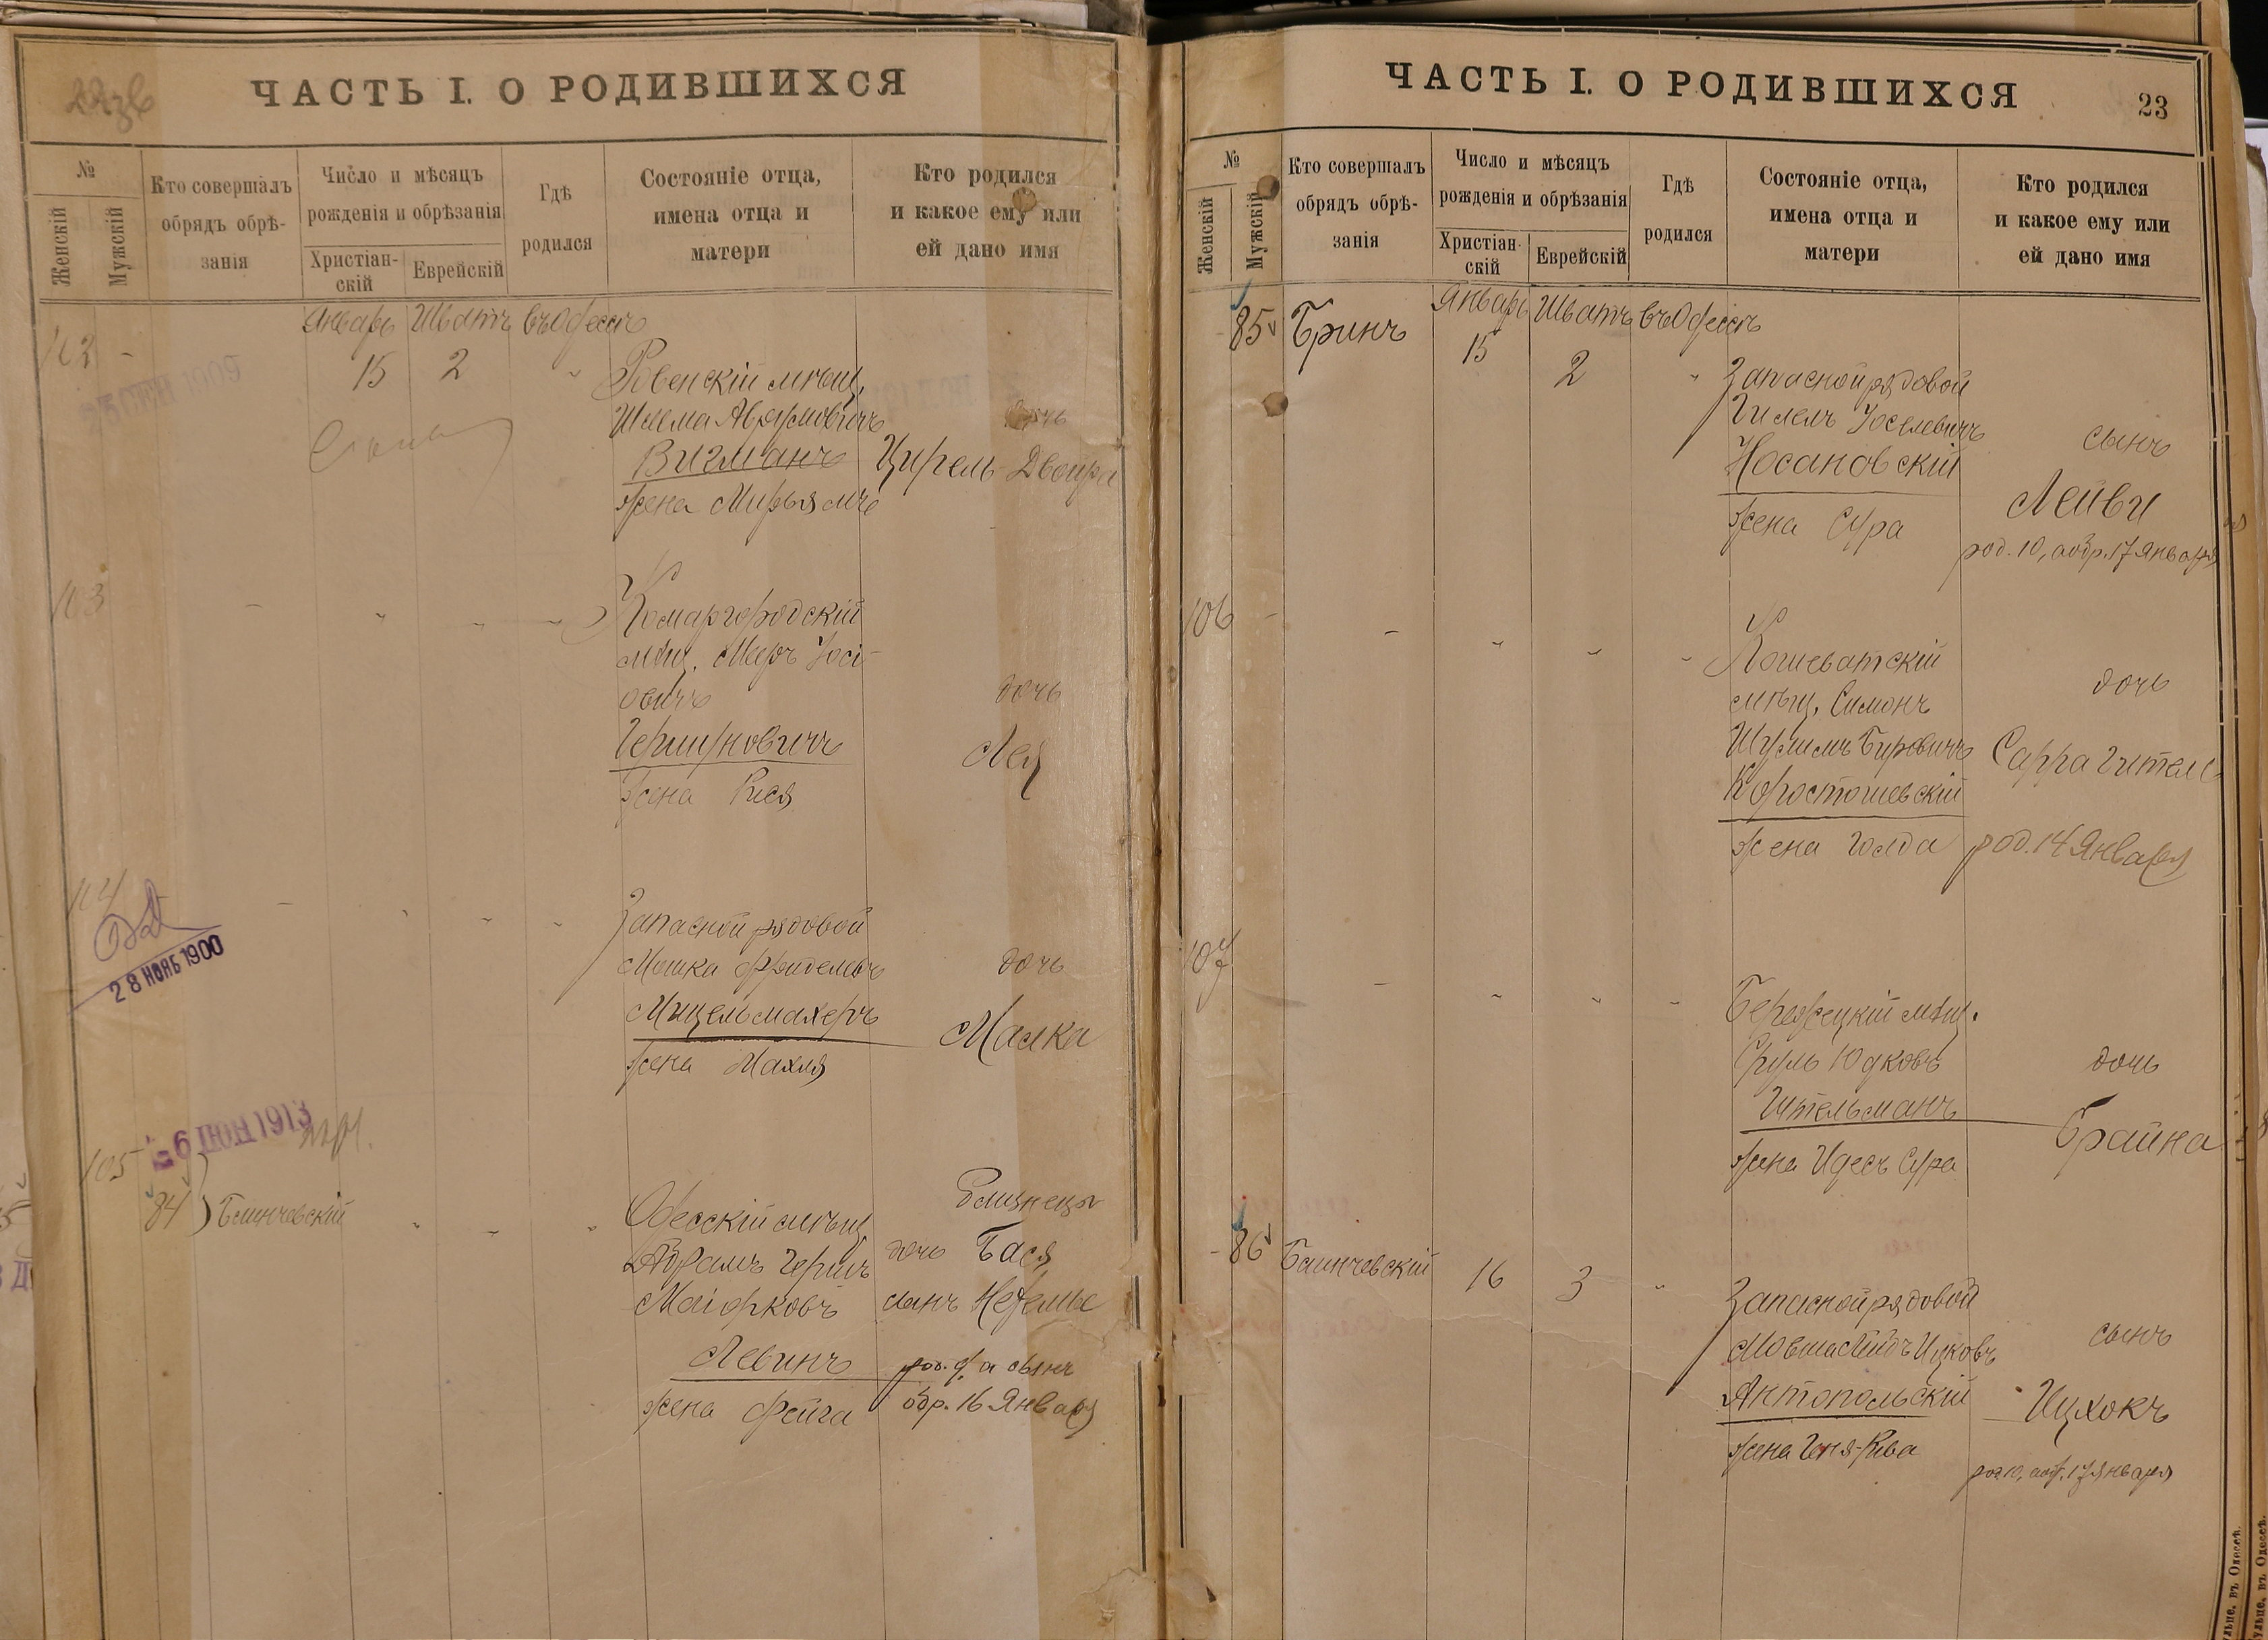 ЧАСТЬ I. О РОДИВШИХСЯ
№
Женскій
Мужскій
Кто совершалъ
обрядъ обрѣ-
занія
Число и мѣсяцъ
рожденія и обрѣзанія
Христіан-
скій
Еврейскій
Гдѣ
родился
Состояніе отца,
имена отца и
матери
Кто родился
и какое ему или
ей дано имя
Январь Шватъ въ Одессѣ
102 - 15 2 "
Ровенскій мѣщ.
Шлема Аврумовичъ
дочь
Вигманъ Цирель-Двойра
жена Мирьямъ
103 - " " "
Комаргородскій
мѣщ. Мееръ Іосі-
овичъ дочь
Гершуновичъ Лея
жена Рися
104 - " " "
28 НОЯБ 1900
Запасной рядовой
Мошка Фриделевъ дочь
Мицельмахеръ Малка
жена Махля
26 ІЮН 1913
105
84 Блинчевскій " " "
Близнецы
Одесскій мѣщ.
Абрамъ Гершъ дочь Бася,
Маіорковъ сынъ
Левинъ род. 9, а сынъ
жена Фейга обр. 16 Января
ЧАСТЬ I. О РОДИВШИХСЯ
23
№
Женскій
Мужскій
Кто совершалъ
обрядъ обрѣ-
занія
Число и мѣсяцъ
рожденія и обрѣзанія
Христіан-
скій
Еврейскій
Гдѣ
родился
Состояніе отца,
имена отца и
матери
Кто родился
и какое ему или
ей дано имя
Январь Шватъ въ Одессѣ
- 85 Бринъ 15 2 "
Запасной рядовой
Гилель Іоселевичъ
сынъ
Носановскій
Лейви
жена Сура
род. 10, а обр. 17 Января
106 - - " " "
Кошеватскій
дочь
мѣщ. Симонъ
Шулимъ Боровичъ Сарра Гитель
Коростошевскій
жена Голда род. 14 Января
107 - " " "
Бережецкій мѣщ.
Сруль Юдковъ дочь
Гительманъ
Брайна
жена Идесъ Сура
- 86 Блинчевскій 16 3 "
Запасной рядовой
сынъ
Мовша Лейбъ Ицковъ
Антопольскій Ицхокъ
жена Геня-Рива
род. 10, а обр. 17 Января